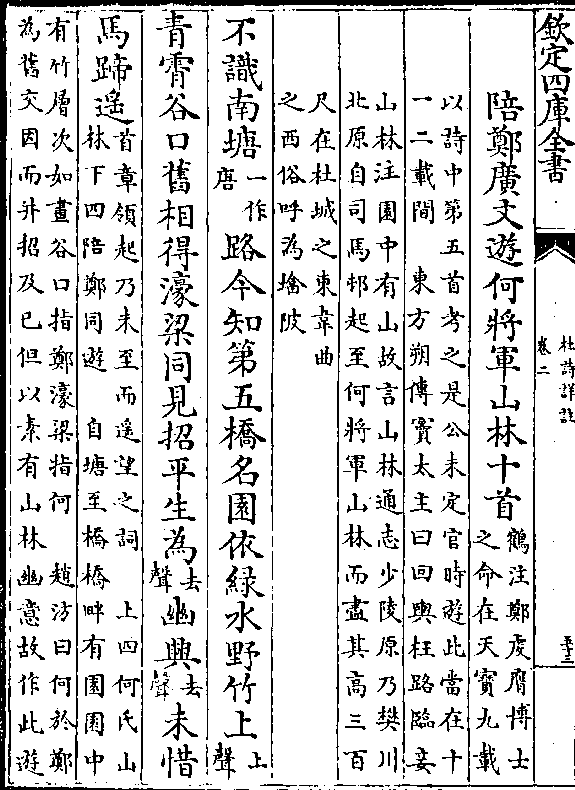 欽定四庫全書
杜詩詳註
卷二
陪鄭廣文遊何將軍山林十首 鶴注鄭虔膺博士
之命在天寶九載
以詩中第五首考之是公未定官時遊此當在十
一二載間　東方朔傳竇太主曰回輿枉路臨妾
山林注園中有山故言山林通志少陵原乃樊川
北原自司馬邨起至何將軍山林而盡其高三百
尺在杜城之東韋曲
之西俗呼為墖陂
不識南塘一作唐路今知第五橋名園依緑水野竹上上聲
青霄谷口舊相得濠梁同見招平生為去聲幽興去聲未惜
馬蹄遥首章領起乃未至而遥望之詞　上四何氏山
林下四陪鄭同遊　自塘至橋橋畔有園園中
有竹層次如畫谷口指鄭濠梁指何　趙汸曰何於鄭
為舊交因而并招及已但以素有山林幽意故作此遊